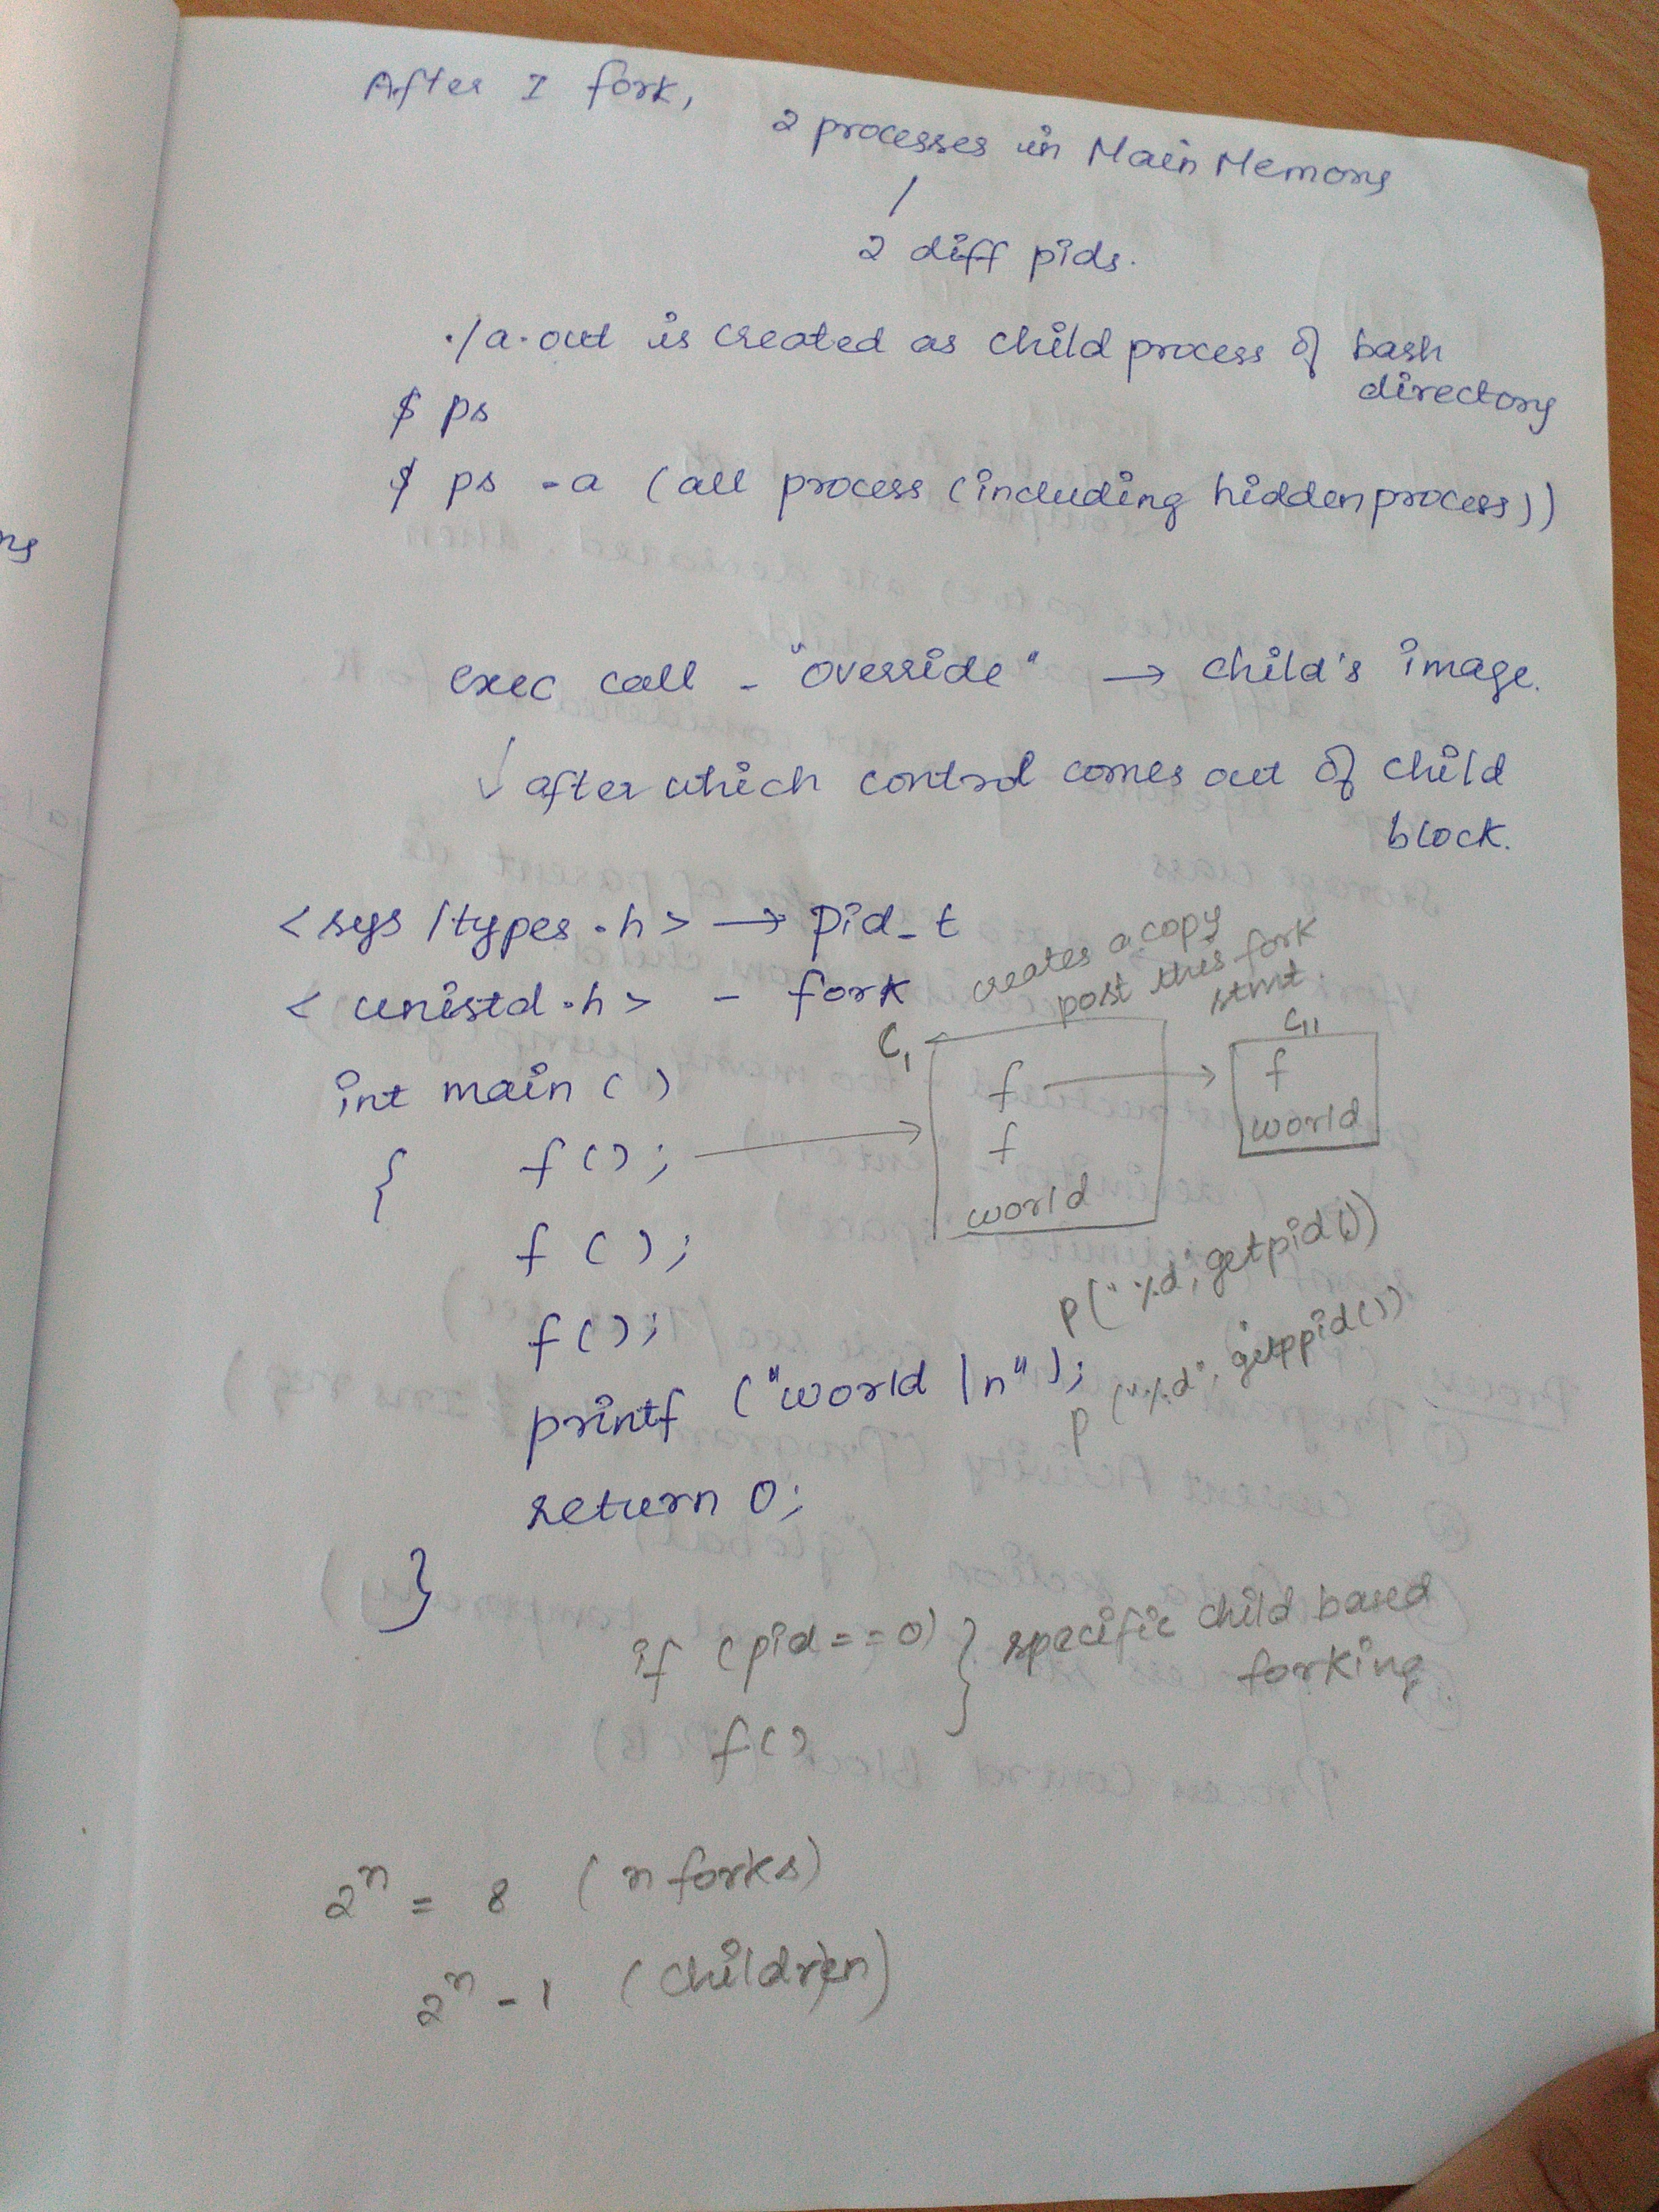 After I fork,
2 processes in Main Memory
2 diff pids.
./a.out is created as child process of bash
directory
$ ps
$ ps -a (all process (including hidden process))
exec call - "override" → child's image.
↓ after which control comes out of child
block.
<sys/types.h> → pid_t
<unistd.h> - fork
creates a copy
post this fork
stmt
int main ()
{ f();
f ();
f();
printf ("world \n");
return 0;
}
C1
f
f
world
C11
f
world
p("%d", getpid())
p("%d", getppid())
if (pid==0) } specific child based
forking
f()
2^n = 8 (n forks)
2^n - 1 (children)